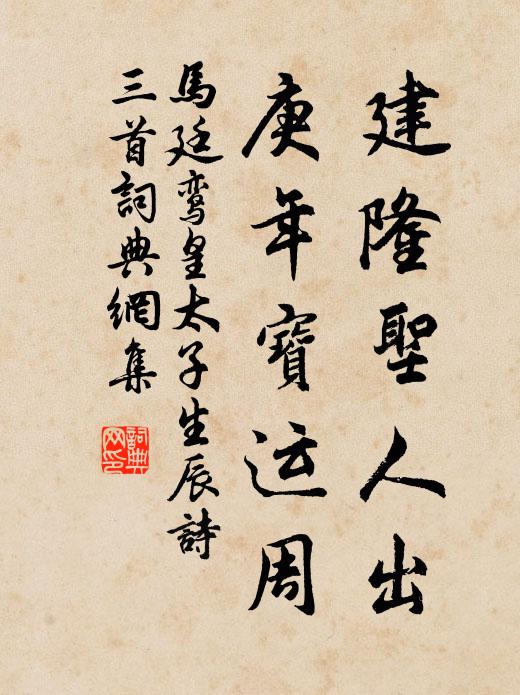 建隆聖人出
庚年寶运周
馬廷鸾皇太子生辰詩
三首詞典網集
詞典網印